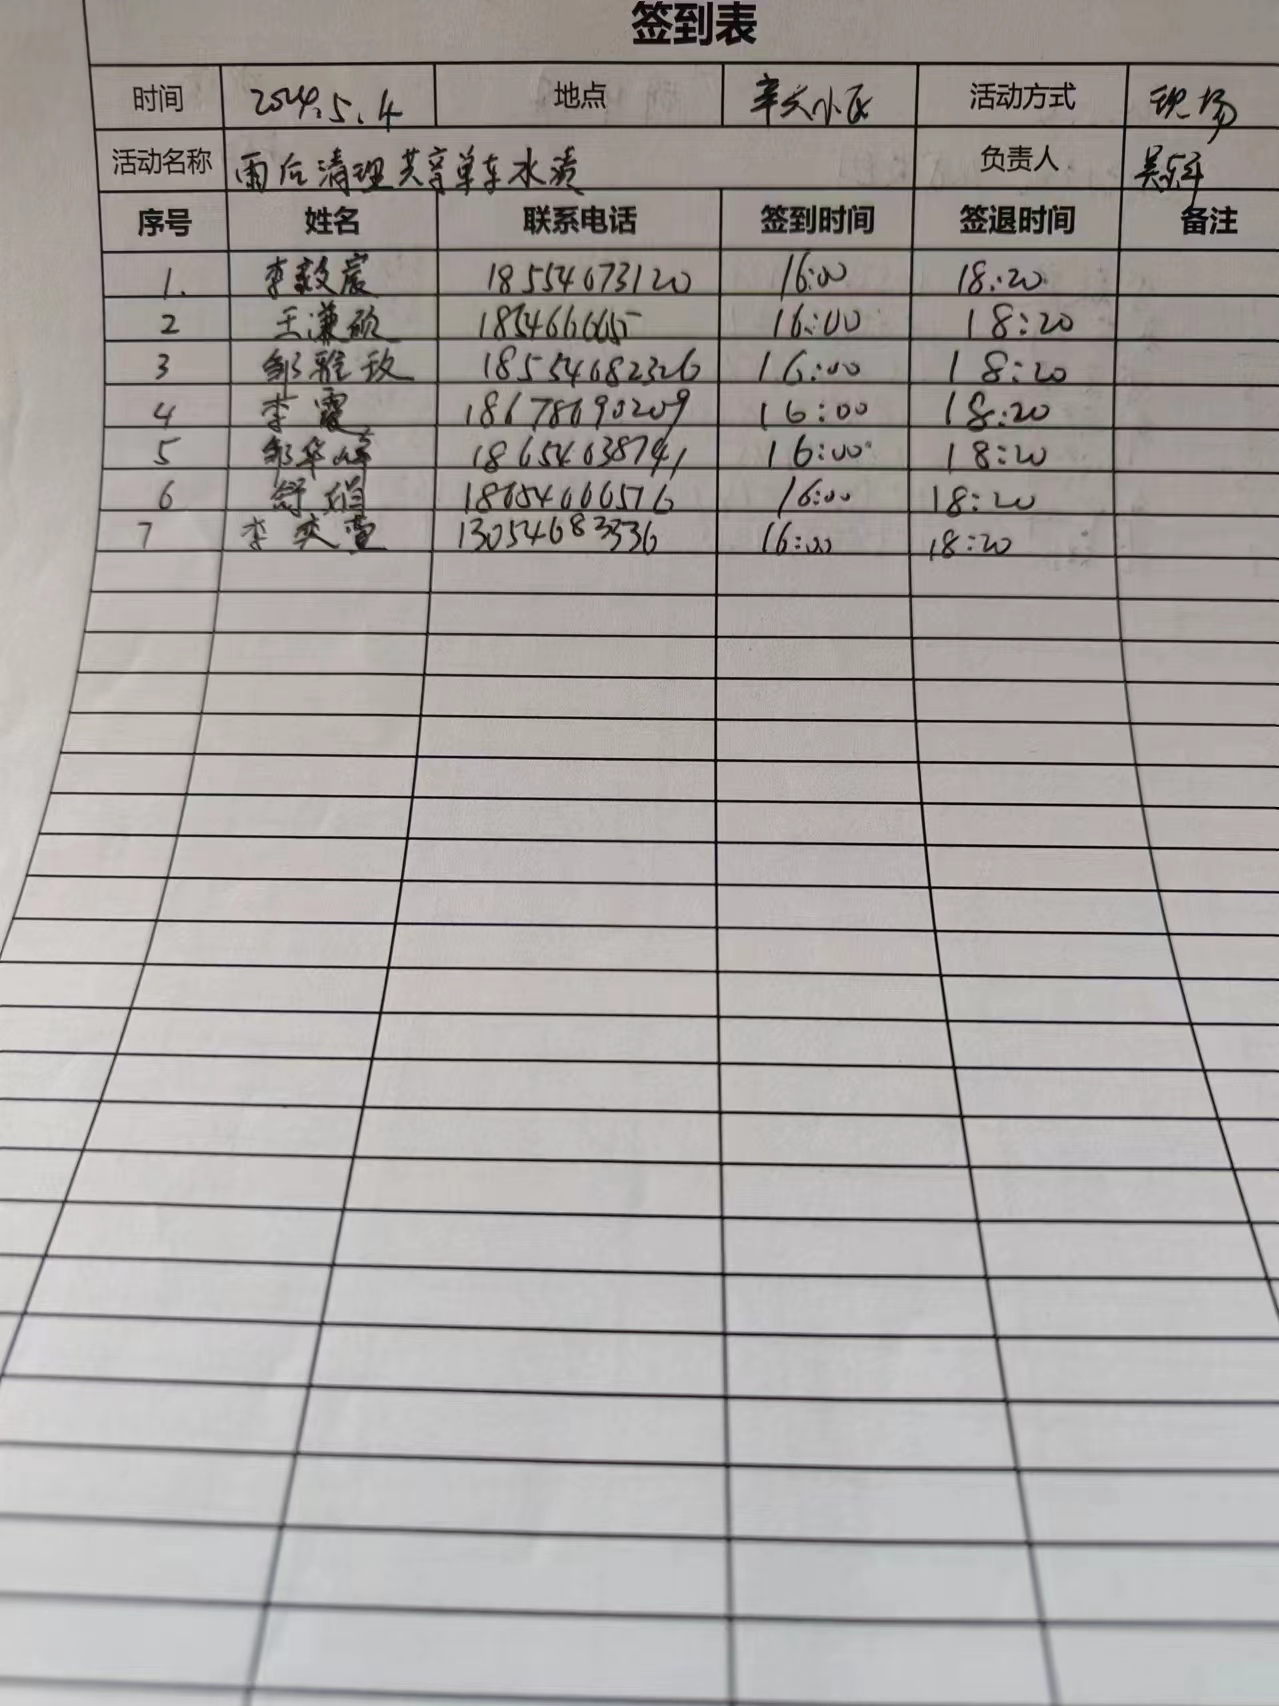 签到表
时间 2024.5.4 地点 辛大小区 活动方式 现场
活动名称 雨后清理共享单车水渍 负责人
序号 姓名 联系电话 签到时间 签退时间 备注
1. 李毅宸 18554673120 16:00 18:20
2 王谦硕 185466665 16:00 18:20
3 邹雅玫 18554682326 16:00 18:20
4 李霞 18678690209 16:00 18:20
5 邹华峰 18654638741 16:00 18:20
6 舒娟 18654666576 16:00 18:20
7 李奕萱 13054683336 16:00 18:20